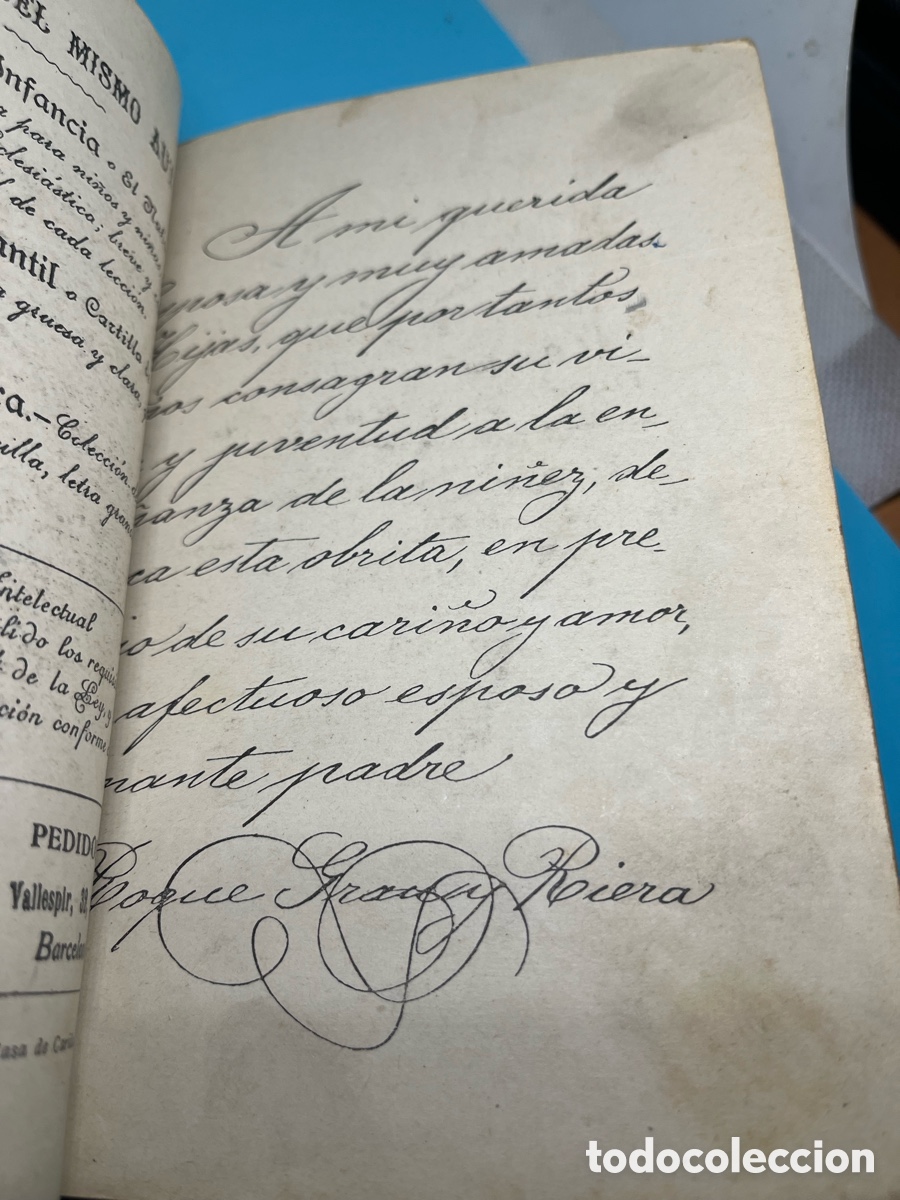 EL MISMO AU
Infancia o El
a para niños y niñas
clesiástica; breve y
l de cada lección.
antil o Cartilla
a gruesa y clara
ca.—Colección
illa, letra gran
Intelectual
lido los requi
de la Ley, y
ción conforme
PEDIDO
Vallespir, 32
Barcel
asa de Cari
A mi querida
sposa y muy amadas
Hijas, que por tantos
ños consagran su vi-
y juventud a la en-
ñanza de la niñez, de-
ca esta obrita, en pre-
io de su cariño y amor,
afectuoso esposo y
mante padre
Roque Grau y Riera
todocoleccion